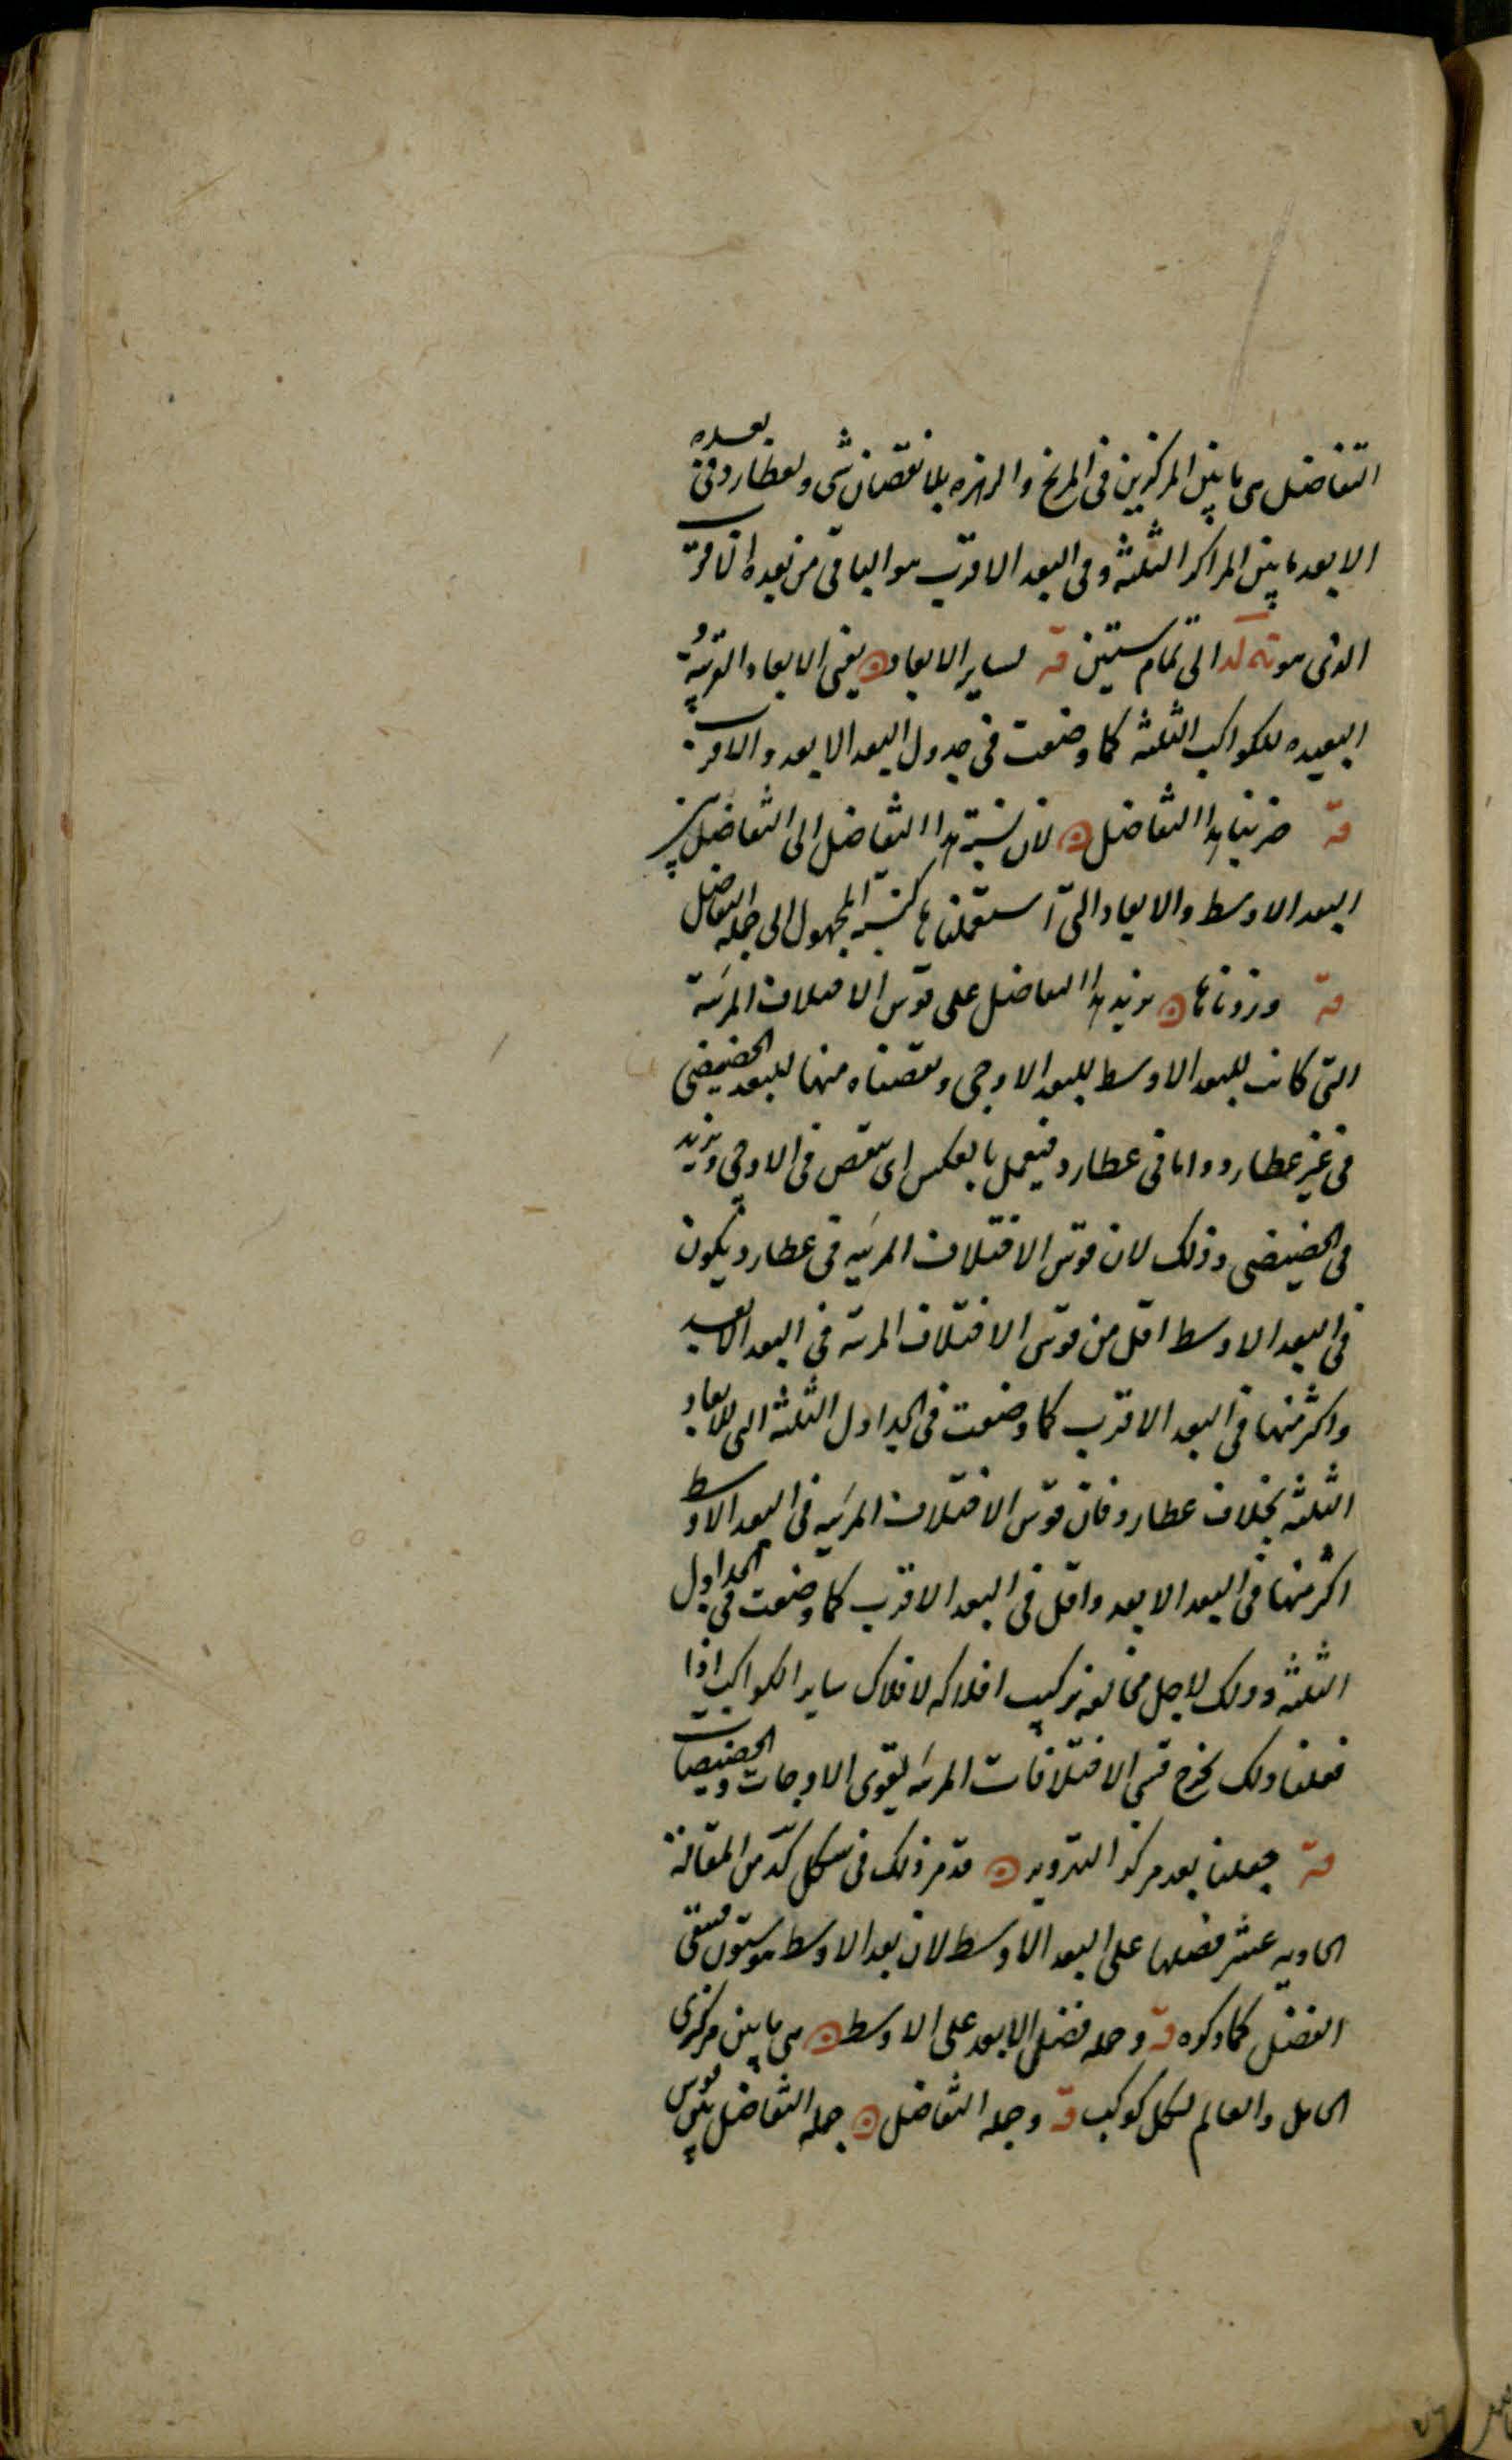 التفاضل هى ما بين المركزين فى المريخ والزهره بلا نقصان شى ولعطارد فى بعده
الابعد ما بين المراكز الثلثة وفى البعد الاقرب هو الباقى من بعده الاقرب
الذى هو نه لد الى تمام ستين قه لساير الابعاد يعنى الابعاد القريبة و
البعيده للكواكب الثلثه كما وضعت فى جدول البعد الابعد والاقرب
قه ضربنا هذا التفاضل لان نسبة هذا التفاضل الى التفاضل بين
البعد الاوسط والابعاد التى استعملناها كنسبة المجهول الى جملة التفاضل
قه وزدناها نزيد هذا التفاضل على قوس الاختلاف المرئية
التى كانت للبعد الاوسط للبعد الاوجى ونقصناه منها للبعد الحضيضى
فى غير عطارد واما فى عطارد فيعمل بالعكس اى ينقص فى الاوجى ويزيد
فى الحضيضى وذلك لان قوس الاختلاف المرئيه فى عطارد يكون
فى البعد الاوسط اقل من قوس الاختلاف المرئه فى البعد الابعد
واكثر منها فى البعد الاقرب كما وضعت فى الجداول الثلثة التى للابعاد
الثلثه بخلاف عطارد فان قوس الاختلاف المرئيه فى البعد الاوسط
اكثر منها فى البعد الابعد واقل فى البعد الاقرب كما وضعت فى الجداول
الثلثة وذلك لاجل مخالفه تركيب افلاكه لافلاك ساير الكواكب اذا
فعلنا ذلك يخرج قسى الاختلافات المرئه لقوى الاوجات والحضيضات
قه جعلنا بعد مركز التدوير قد مر ذلك فى شكل كد من المقالة
الحاديه عشر فضلها على البعد الاوسط لان بعد الاوسط هو ستون فيبقى
الفضل كما ذكره قه وجمله فضل الابعد على الاوسط هى ما بين مركزى
الحامل والعالم لكل كوكب قه وجمله التفاضل جمله التفاضل بين قوس